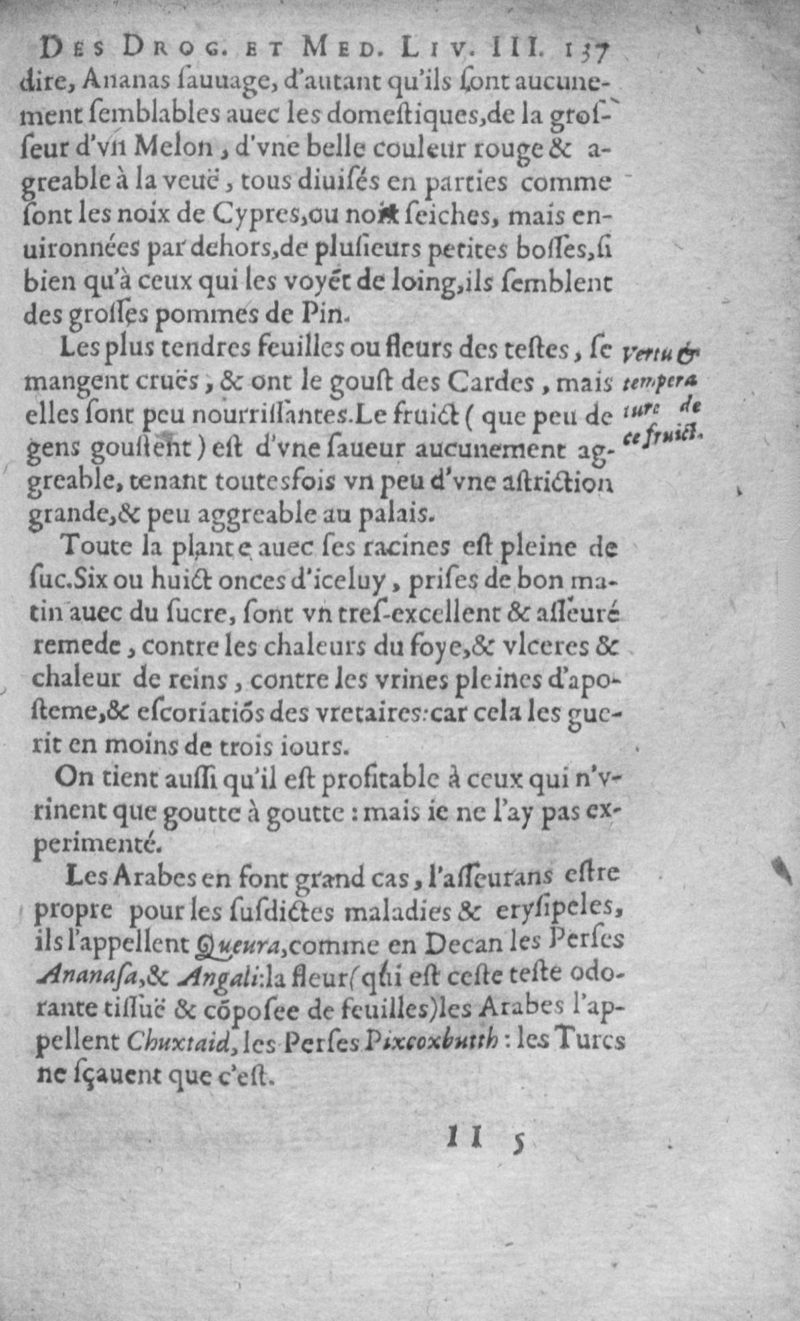 DES DROG. ET MED. LIV. III. 137
dire, Ananas ſauuage, d'autant qu'ils ſont aucune-
ment ſemblables auec les domeſtiques,de la groſ-
ſeur d'vn Melon , d'vne belle couleur rouge & a-
greable à la veuë , tous diuiſés en parties comme
ſont les noix de Cypres,ou noix ſeiches, mais en-
uironnées par dehors,de pluſieurs petites boſſes,ſi
bien qu'à ceux qui les voyẽt de loing,ils ſemblent
des groſſes pommes de Pin.
Les plus tendres feuilles ou fleurs des teſtes , ſe
mangent cruës , & ont le gouſt des Cardes , mais
elles ſont peu nourriſſantes.Le fruict ( que peu de
gens gouſtent ) eſt d'vne ſaueur aucunement ag-
greable, tenant toutesfois vn peu d'vne aſtriction
grande,& peu aggreable au palais.
Vertu &
tempera
ture de
ce fruict.
Toute la plante auec ſes racines eſt pleine de
ſuc.Six ou huict onces d'iceluy , priſes de bon ma-
tin auec du ſucre, ſont vn treſ-excellent & aſſeuré
remede , contre les chaleurs du foye,& vlceres &
chaleur de reins , contre les vrines pleines d'apo-
ſteme,& eſcoriatiõs des vretaires:car cela les gue-
rit en moins de trois iours.
On tient auſſi qu'il eſt profitable à ceux qui n'v-
rinent que goutte à goutte : mais ie ne l'ay pas ex-
perimenté.
Les Arabes en font grand cas , l'aſſeurans eſtre
propre pour les ſuſdictes maladies & eryſipeles,
ils l'appellent Queura,comme en Decan les Perſes
Ananaſa,& Angali:la fleur(qui eſt ceſte teſte odo-
rante tiſſuë & cõpoſee de feuilles)les Arabes l'ap-
pellent Chuxtaid, les Perſes Pixcoxbutth : les Turcs
ne ſçauent que c'eſt.
II 5